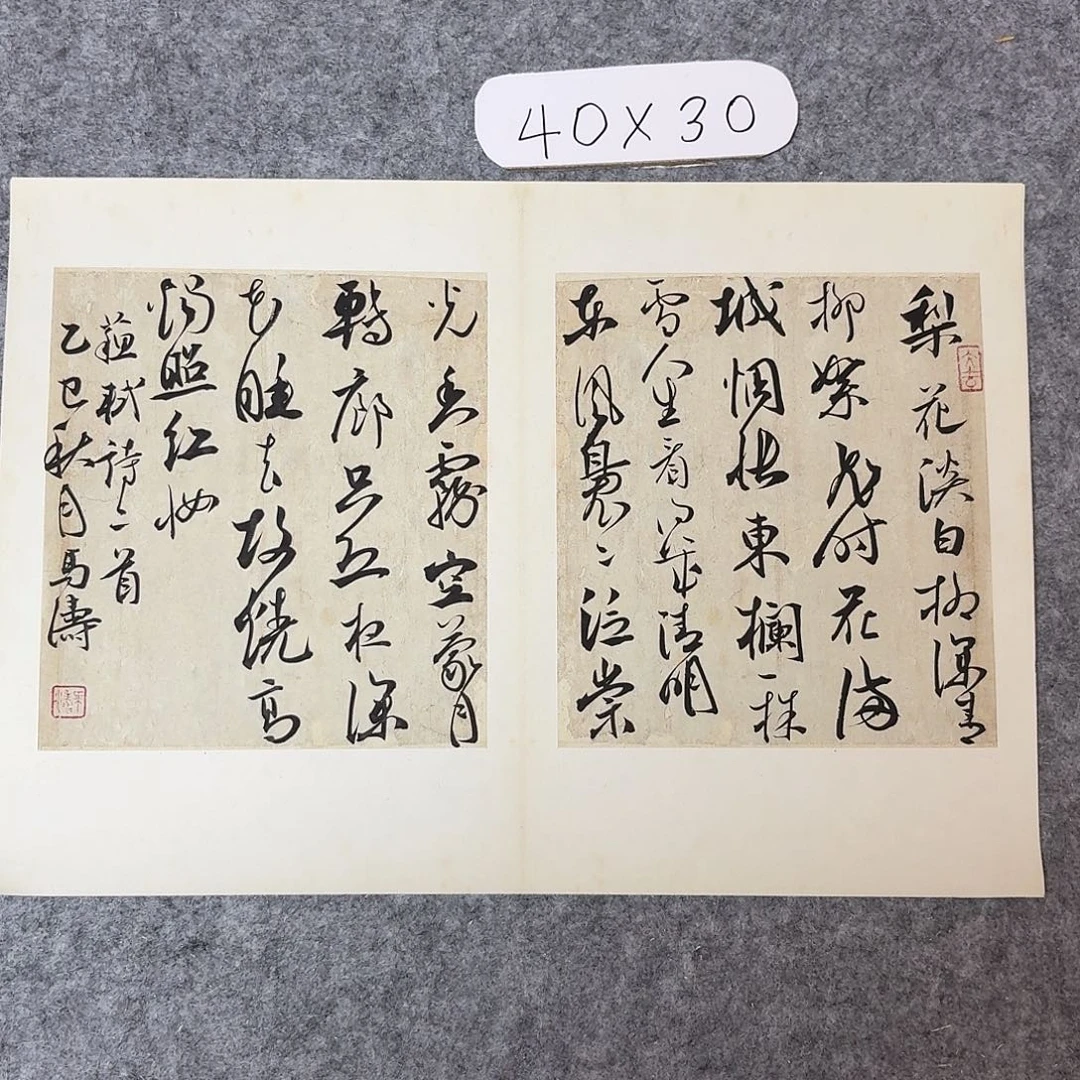 40X30
梨花淡白柳深青
柳絮飛時花滿
城惆悵東欄一株
雪人生看得幾清明
東風裊〻泛崇
光香霧空蒙月
轉廊只恐夜深
花睡去故燒高
燭照紅妝
蘇軾詩二首
乙巳秋月馬濤